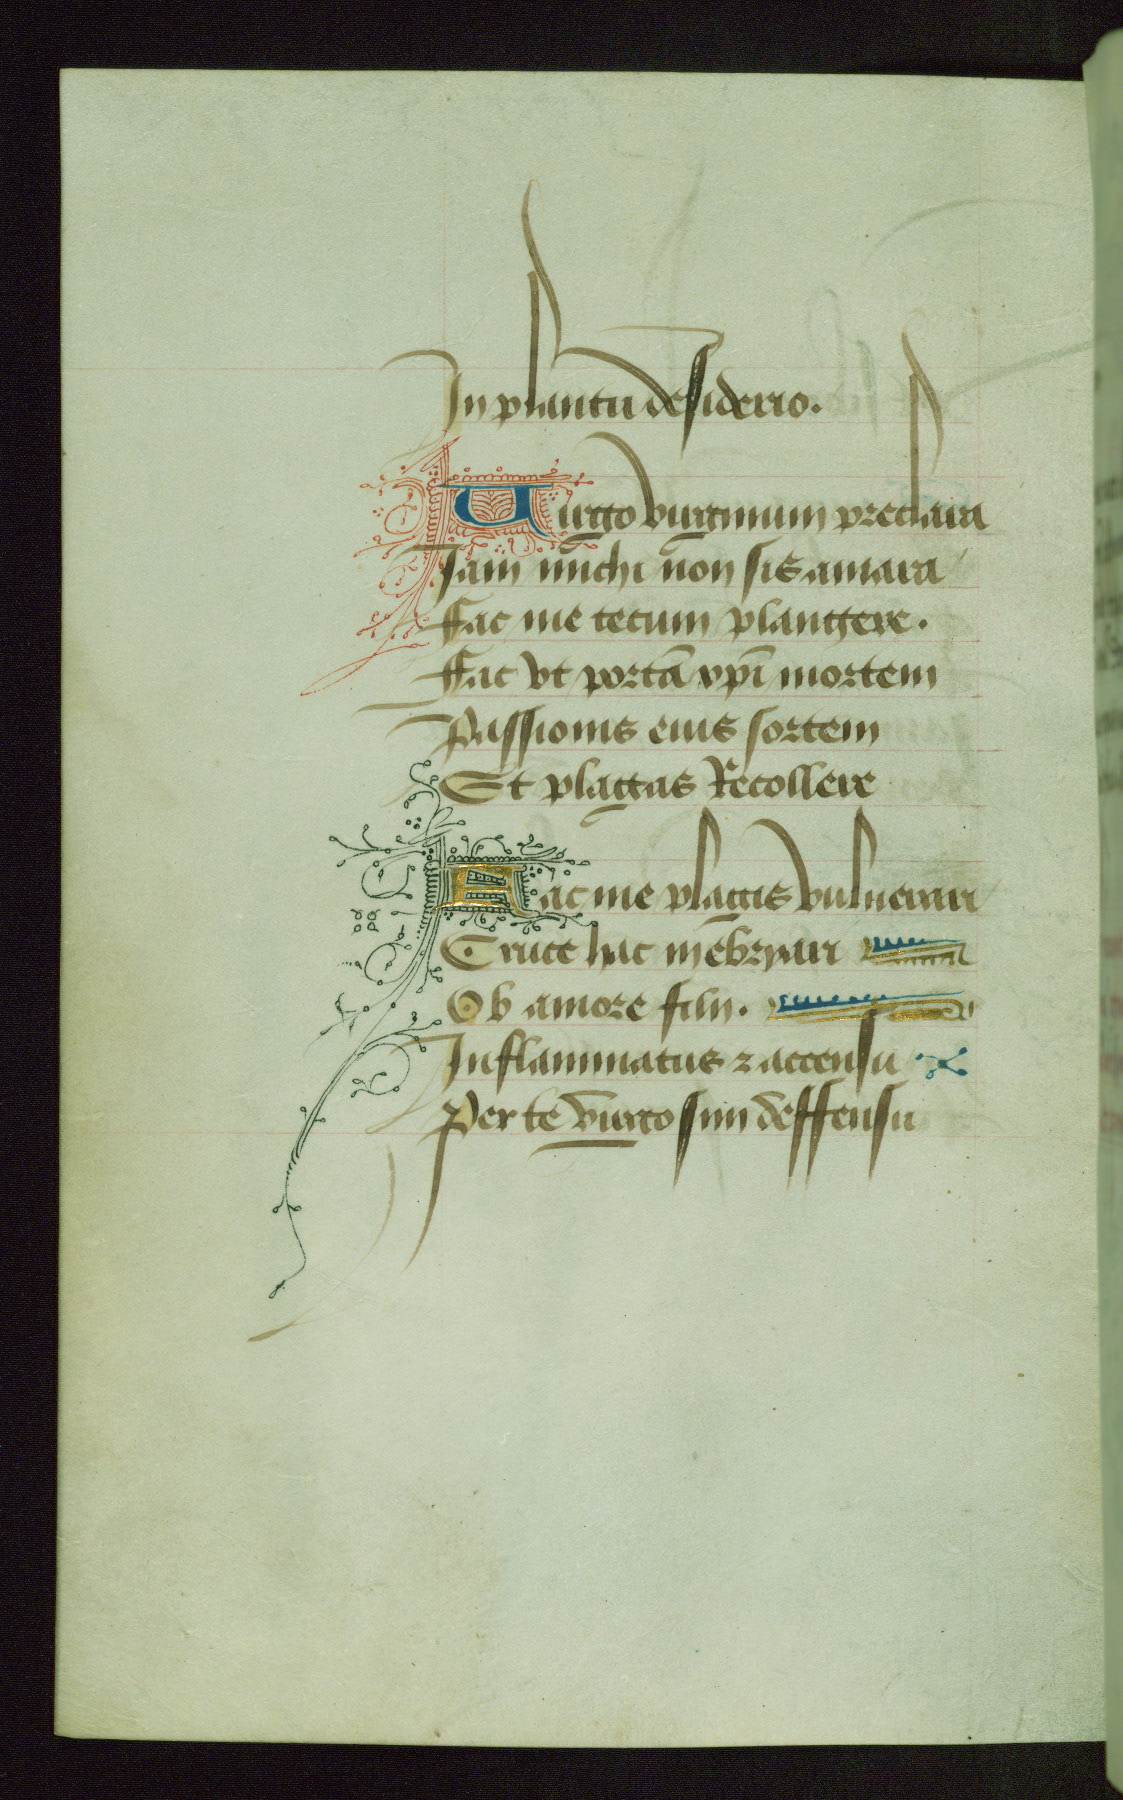 In plantu desiderio.
Uirgo virginum preclara
Jam michi non sis amara
Fac me tecum plangere.
Fac vt portā xpī mortem
Passionis eius sortem
Et plagas Recollere
Fac me plagis vulnerari
Cruce hac inēbryari
Ob amore filii.
Inflammatus ⁊ accensu
Per te virgo sim deffensu